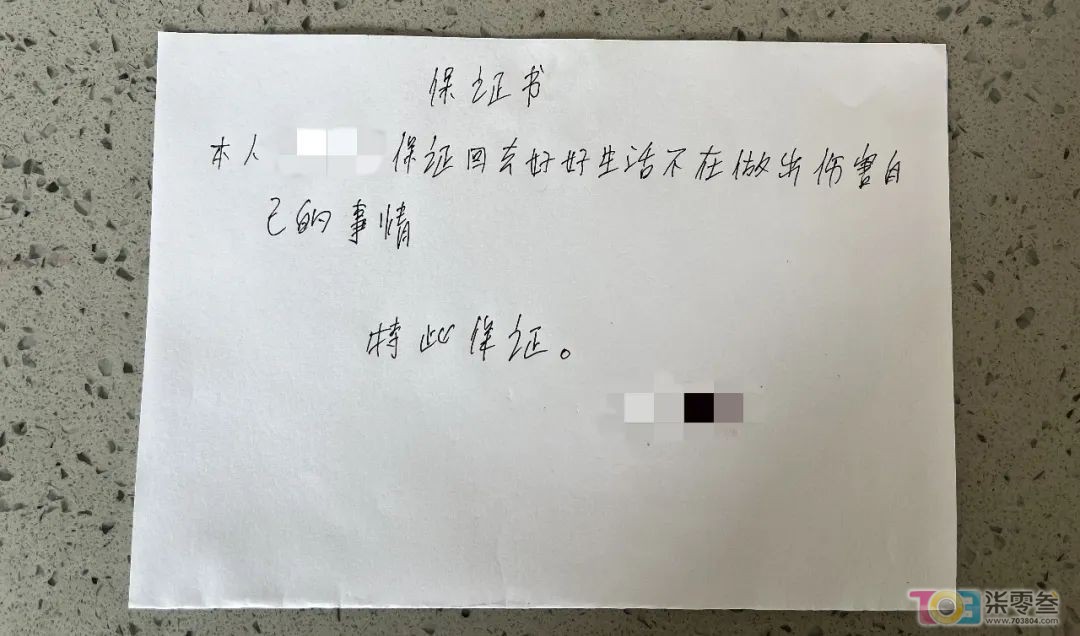 保证书
本人 保证回去好好生活不在做出伤害自
己的事情
特此保证。
703 柒零叁
www.703804.com